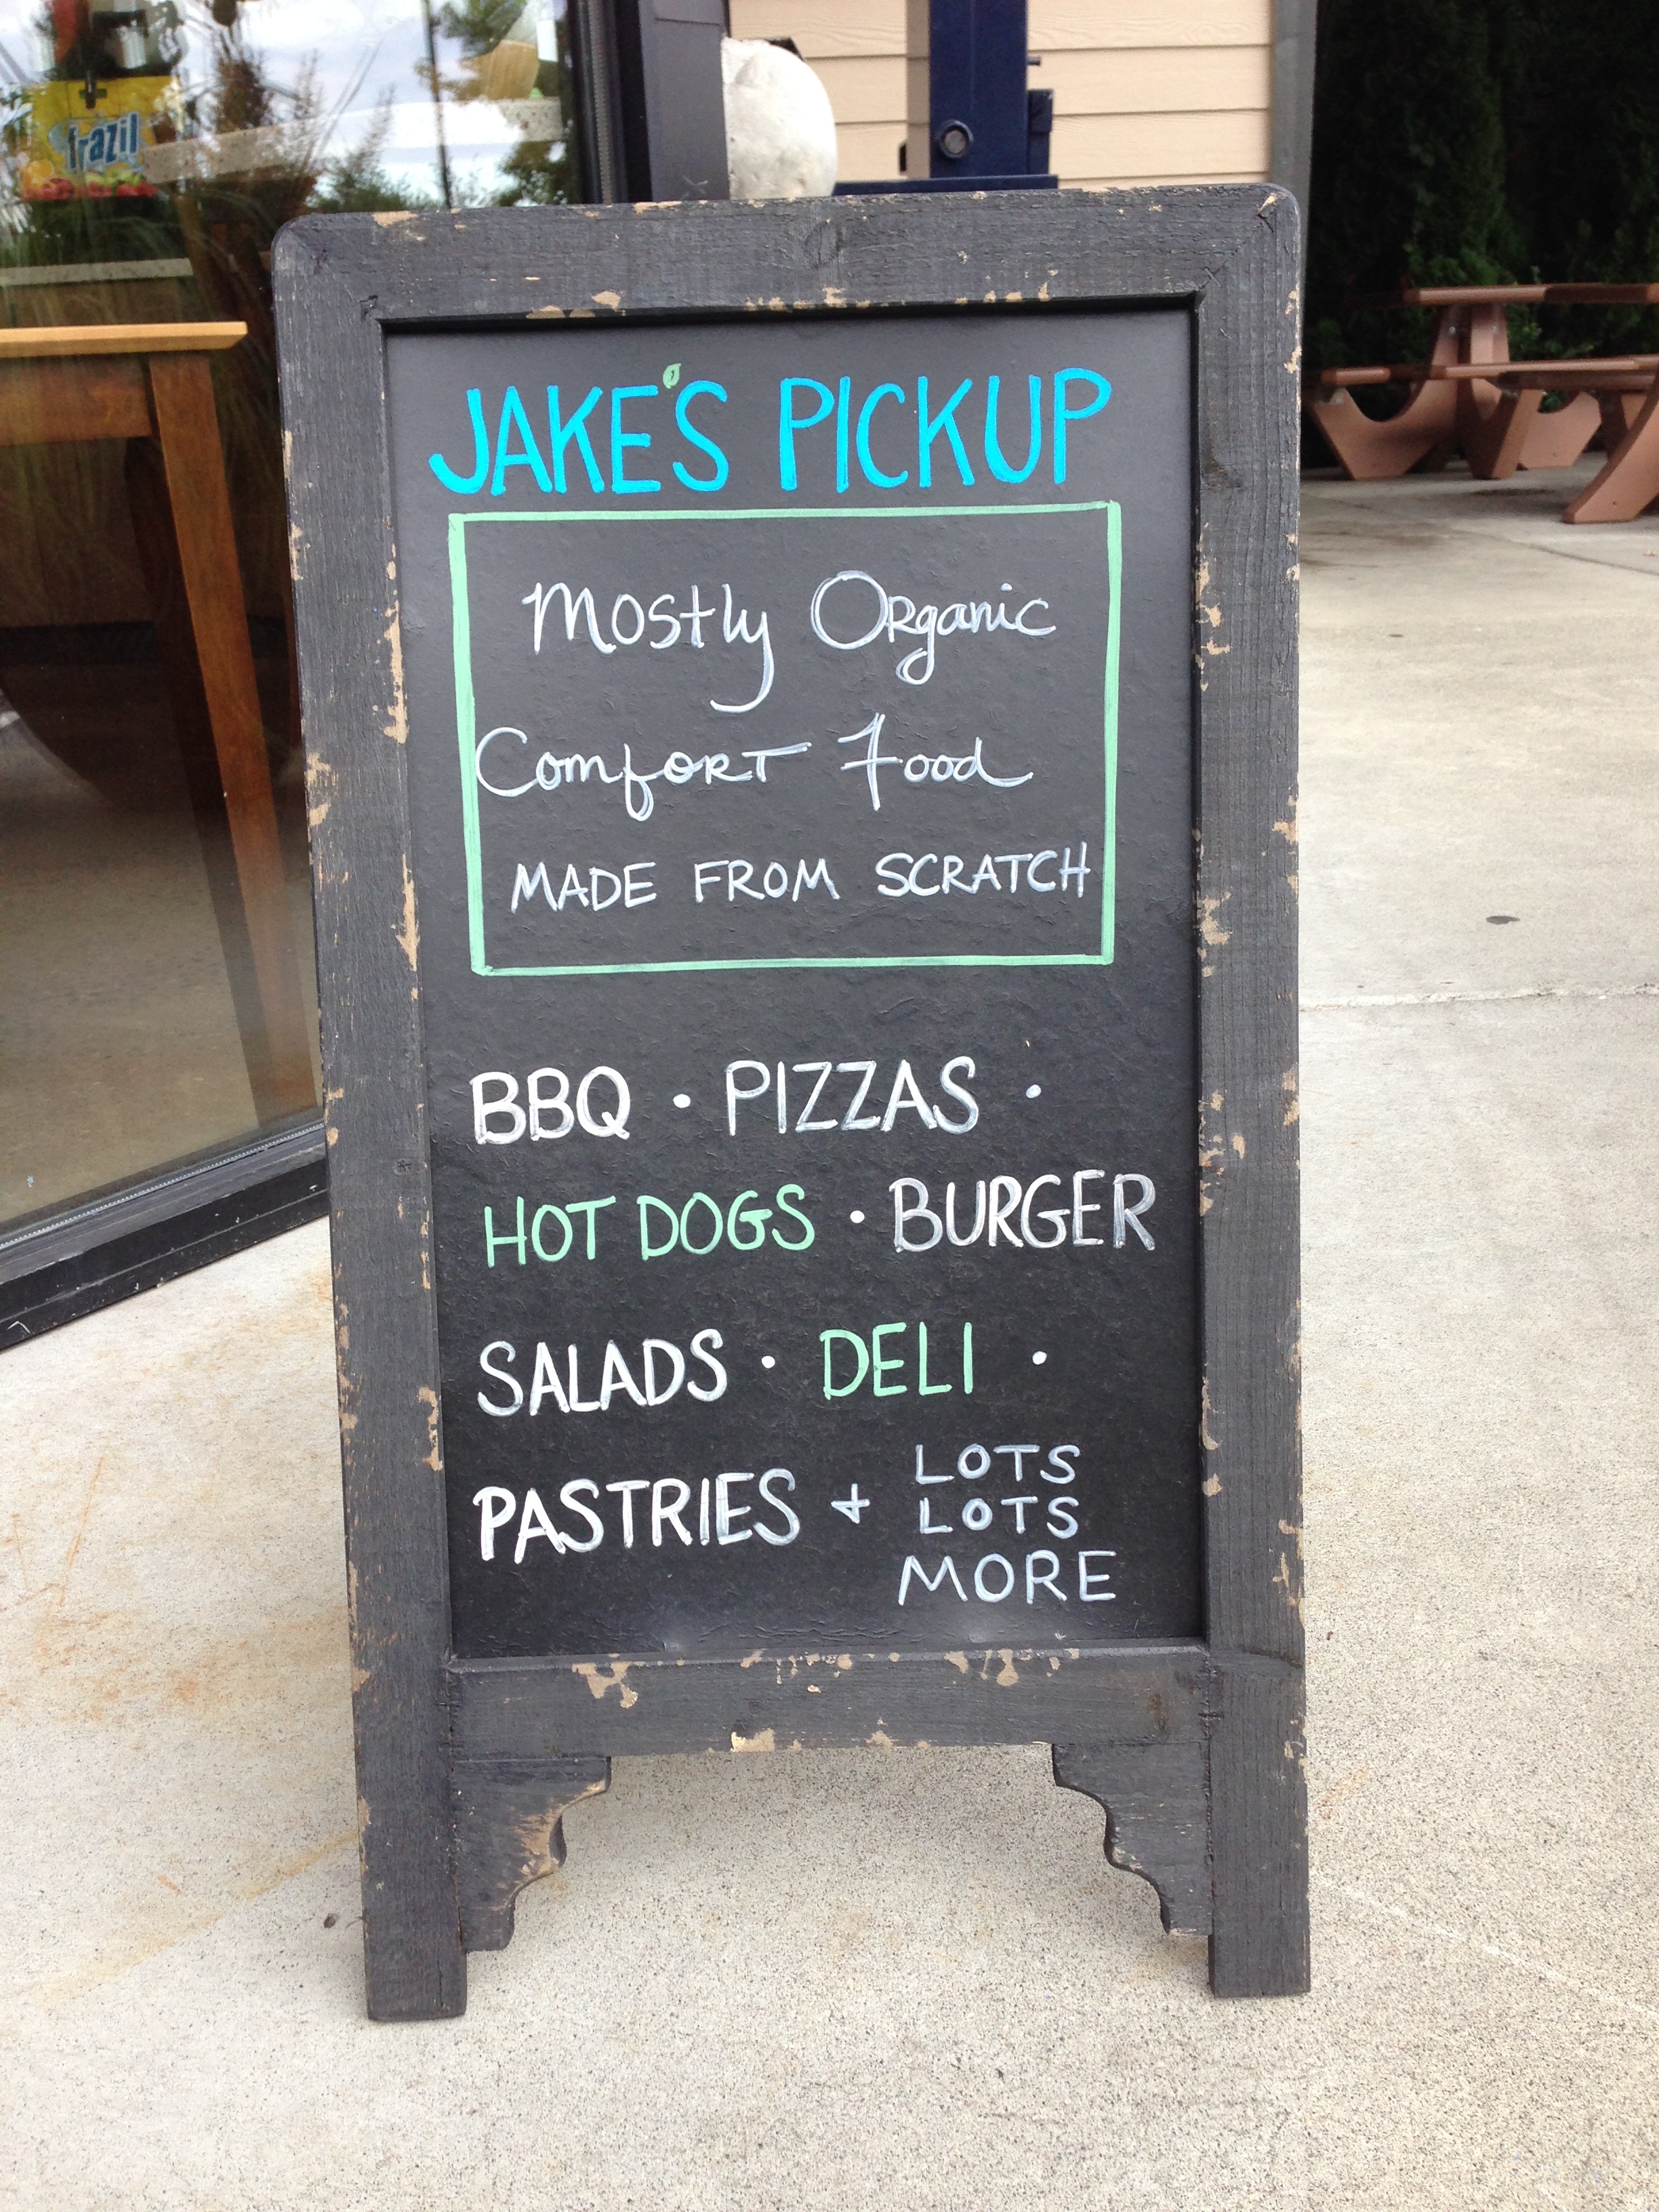 frazil
JAKE'S PICKUP
Mostly Organic
Comfort Food
MADE FROM SCRATCH
BBQ · PIZZAS ·
HOT DOGS · BURGER
SALADS · DELI ·
PASTRIES + LOTS
LOTS
MORE